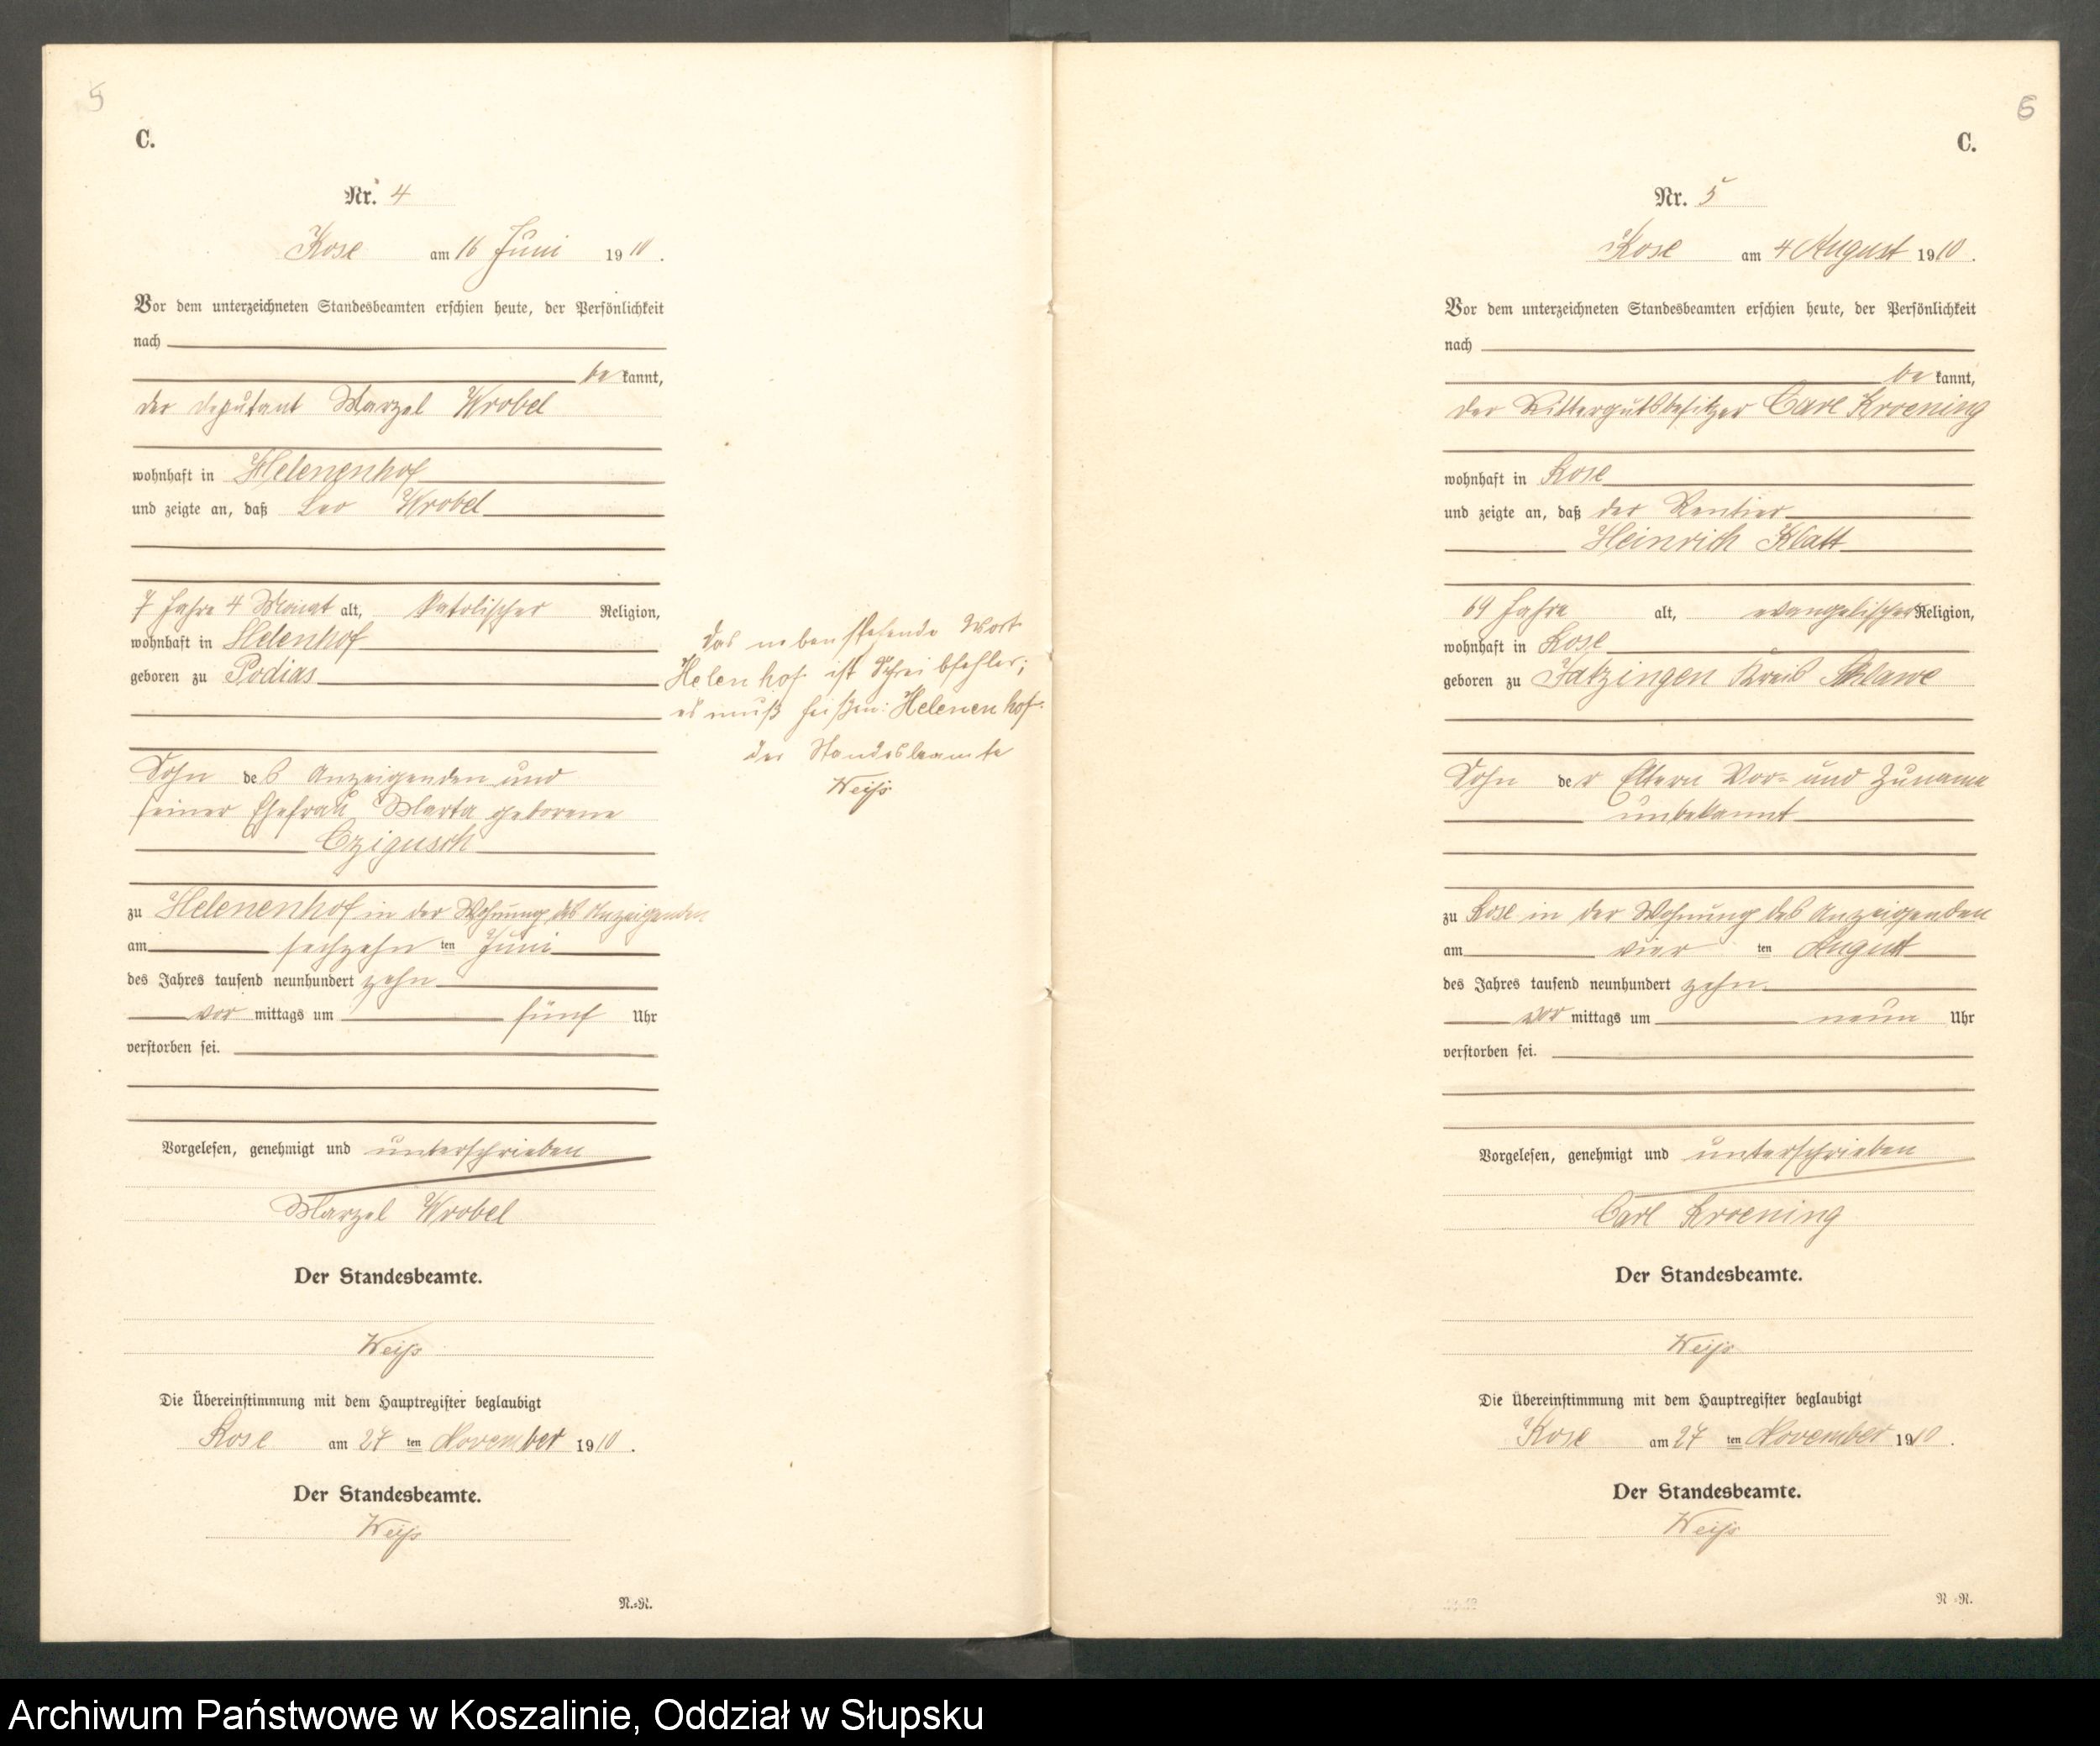 5
C.
Nr. 4
Kose am 16 Juni 1910.
Vor dem unterzeichneten Standesbeamten erschien heute, der Persönlichkeit
nach
be kannt,
der Deputant Marzel Wrobel
wohnhaft in Helenenhof
und zeigte an, daß Leo Wrobel
7 Jahre 4 Monat alt, katolischer Religion,
wohnhaft in Helenhof
geboren zu Podias
Sohn des Anzeigenden und
seiner Ehefrau Marta geborene
Czigusch
zu Helenenhof in der Wohnung des Anzeigenden
am sechzehn ten Juni
des Jahres tausend neunhundert zehn
vor mittags um fünf Uhr
verstorben sei.
Vorgelesen, genehmigt und unterschrieben
Marzel Wrobel
Der Standesbeamte.
Weiß
Die Übereinstimmung mit dem Hauptregister beglaubigt
Kose am 27 ten November 1910.
Der Standesbeamte.
Weiß
N.=N.
Das nebenstehende Wort
Helenhof ist Schreibfehler;
es muß heißen: Helenenhof.
Der Standesbeamte
Weiß
6
C.
Nr. 5
Kose am 4 August 1910.
Vor dem unterzeichneten Standesbeamten erschien heute, der Persönlichkeit
nach
be kannt,
der Rittergutsbesitzer Carl Kroening
wohnhaft in Kose
und zeigte an, daß der Rentier
Heinrich Klatt
64 Jahre alt, evangelischer Religion,
wohnhaft in Kose
geboren zu Jatzingen Kreis Schlawe
Sohn der Eltern Vor= und Zuname
unbekannt
zu Kose in der Wohnung des Anzeigenden
am vier ten August
des Jahres tausend neunhundert zehn
vor mittags um neun Uhr
verstorben sei.
Vorgelesen, genehmigt und unterschrieben
Carl Kroening
Der Standesbeamte.
Weiß
Die Übereinstimmung mit dem Hauptregister beglaubigt
Kose am 27 ten November 1910.
Der Standesbeamte.
Weiß
N.=N.
Archiwum Państwowe w Koszalinie, Oddział w Słupsku